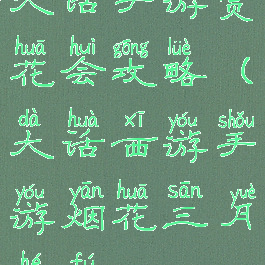 大话手游赏
huā huì gōng lüè
花会攻略（
dà huà xī yóu shǒu
大话西游手
yóu yān huā sān yuè
游烟花三月
hé fú